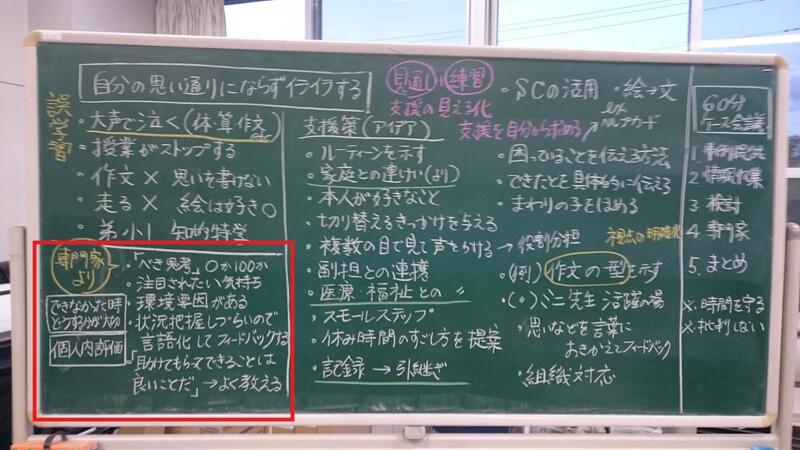 自分の思い通りにならずイライラする
誤学習
・大声で泣く(体・算・作文
・授業がストップする
・作文× 思いを書けない
・走る× 絵は好き○
・弟小1 知的特学
専門家より
できなかった時どうするかが大切
個人内評価
・「べき思考」0か100か
・注目されたい気持ち
・環境要因がある
・状況把握しづらいので
言語化してフィードバックする
・「助けてもらってできることは
良いことだ」→よく教える
見通し 練習
支援の見える化
支援を自分から求める
支援策(アイデア)
・ルーティーンを示す
・家庭との連けい(より)
・本人が好きなこと
・切り替えるきっかけを与える
・複数の目で見て声をかける→役割分担
・副担との連携
・医療・福祉との 〃
・スモールステップ
・休み時間のすごし方を提案
・記録→引継ぎ
・SCの活用 ・絵→文
ヘルプカード
・困っていることを伝える方法
・できたことを具体的に伝える
・まわりの子をほめる
視点の明確化
・(例)作文の型を示す
・(〃)ミニ先生活躍の場
・思いなどを言葉に
おきかえてフィードバック
・組織対応
60分
ケース会議
1. 事例提供
2. 情報収集
3. 検討
4. 専門家
5. まとめ
※時間を守る
※批判しない